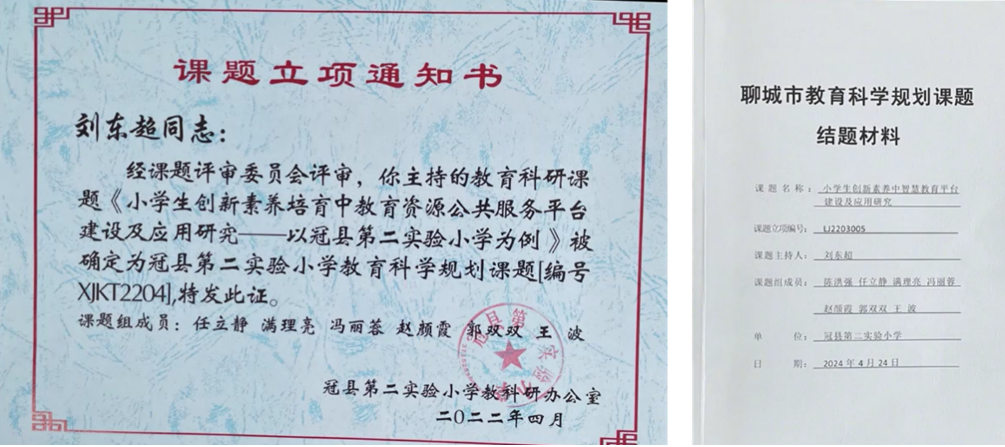 课题立项通知书
刘东超同志：
经课题评审委员会评审，你主持的教育科研课
题《小学生创新素养培育中教育资源公共服务平台
建设及应用研究——以冠县第二实验小学为例》被
确定为冠县第二实验小学教育科学规划课题[编号
XJKT2204],特发此证。
课题组成员：任立静 满理亮 冯丽蓉 赵颜霞 郭双双 王 波
冠县第二实验小学教科研办公室
二〇二二年四月
聊城市教育科学规划课题
结题材料
课题名称：小学生创新素养中智慧教育平台
建设及应用研究
课题立项编号：LJ2203005
课题主持人：刘东超
课题组成员：陈洪强 任立静 满理亮 冯丽蓉
赵颜霞 郭双双 王 波
单 位：冠县第二实验小学
日 期：2024 年 4 月 24 日